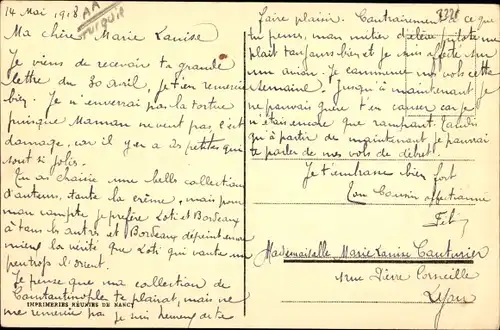 14 Mai 1918
AA
TURQUIE
Ma chère Marie Louise
Je viens de recevoir ta grande
lettre du 30 avril, je t'en remercie
bien. Je n'enverrai pas la tortue
puisque Maman ne veut pas c'est
dommage, car il y en a des petites qui
sont si jolies.
Tu as choisie une belle collection
d'auteurs, toute la crème, mais pour
mon compte je préfère Loti et Bordeaux
à tous les autres et Bordeaux dépeint
mieux la vérité que Loti qui vante un
peu trop l'orient.
Je pense que ma collection de
Constantinople te plairat, mais ne
me remercie pas je suis heureux de te
IMPRIMERIES RÉUNIES DE NANCY
faire plaisir. Contrairement à ce que
tu penses, mon métier d'élève pilote me
plait toujours bien et je suis affecté sur
un avion. Je commence mes vols cette
semaine. Jusqu'à maintenant je
ne pouvais guère t'en causer car je
n'étais encore que rampant. Tandis
qu'à partir de maintenant je pourrai
te parler de mes vols de début.
Je t'embrasse bien fort
Ton Cousin affectionné
Mademoiselle Marie Louise Couturier
1 rue Pierre Corneille
Lyon